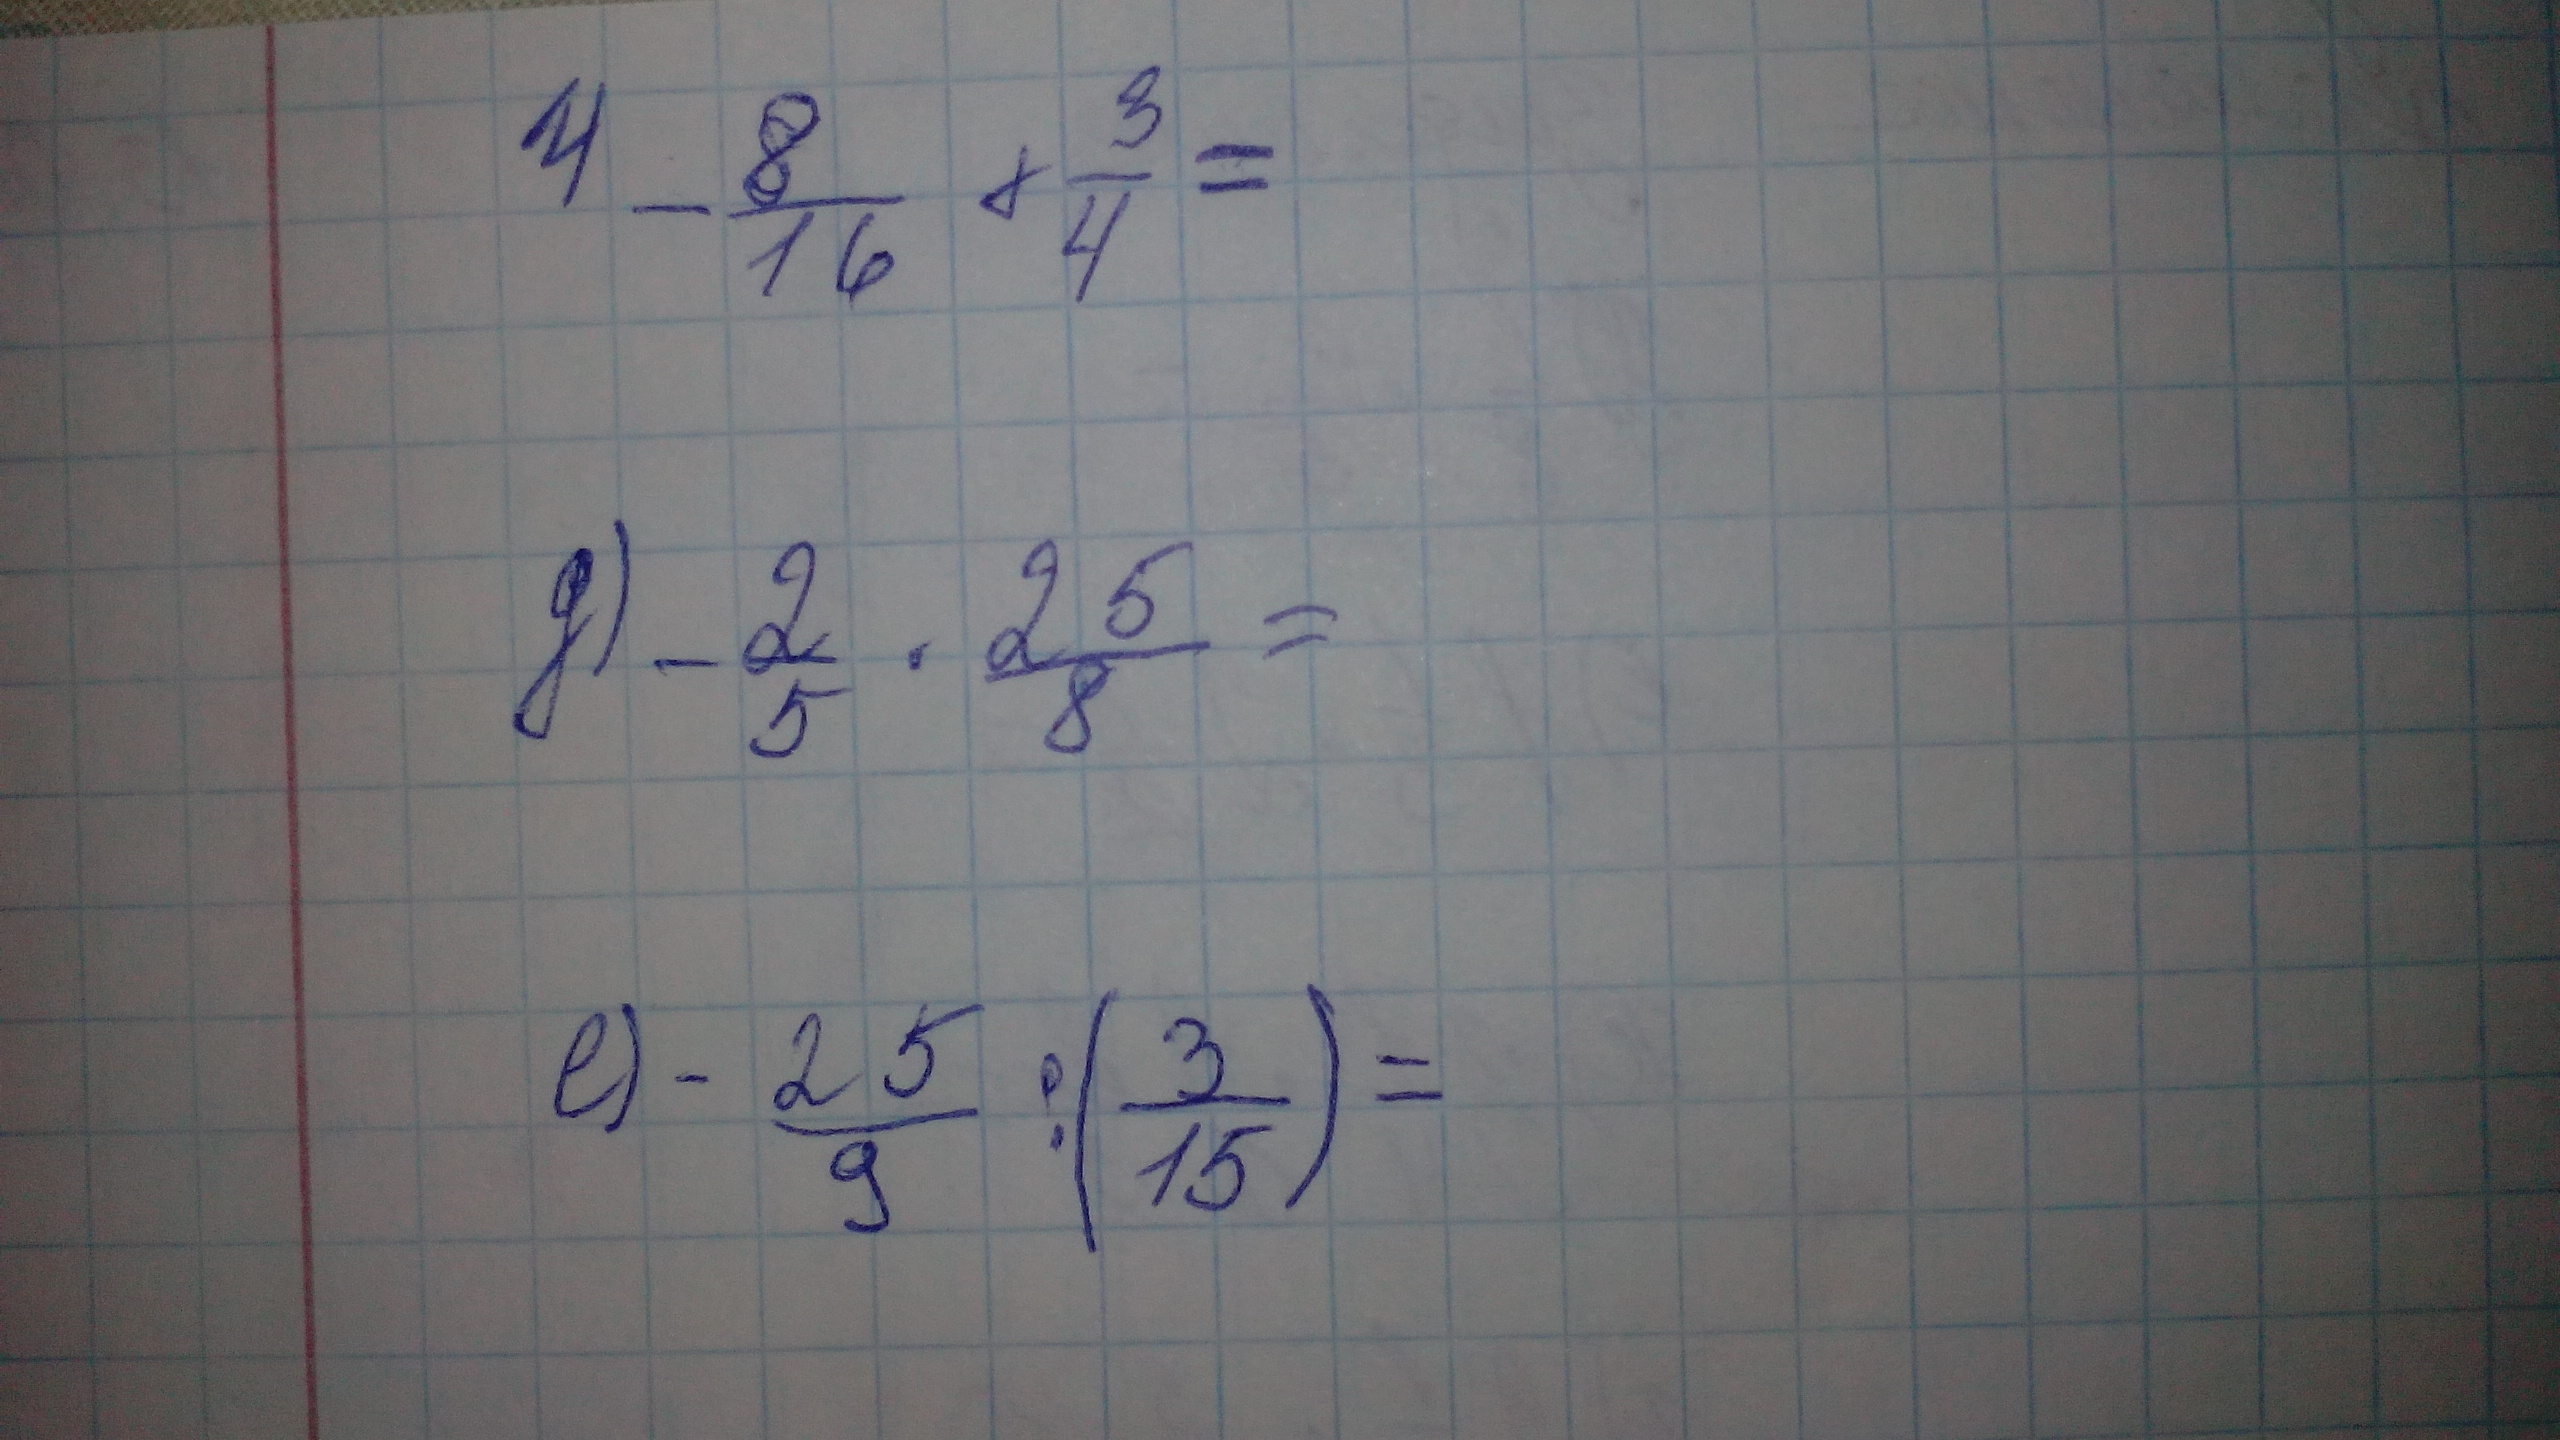 4 - 8/16 + 3/4 =
д) - 2/5 · 25/8 =
е) - 25/9 : (3/15) =